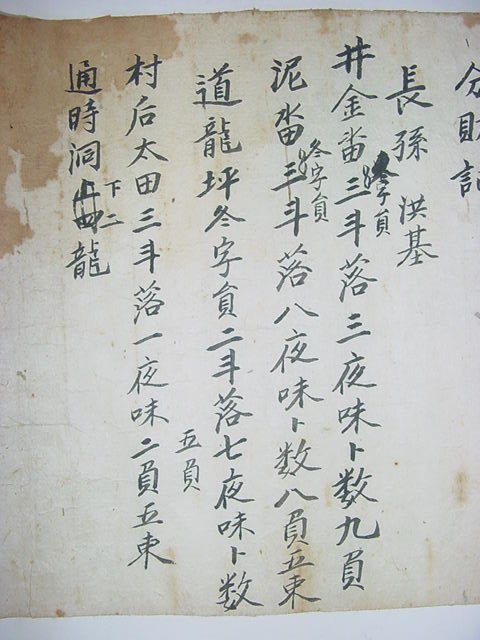 分財記
長孫 洪基
井金畓三斗落三夜味卜数九負
冬字負
泥畓三斗落八夜味卜数八負五束
冬字負
道龍坪冬字負二斗落七夜味卜数
五負
村后太田三斗落一夜味二負五束
通時洞龍
下二